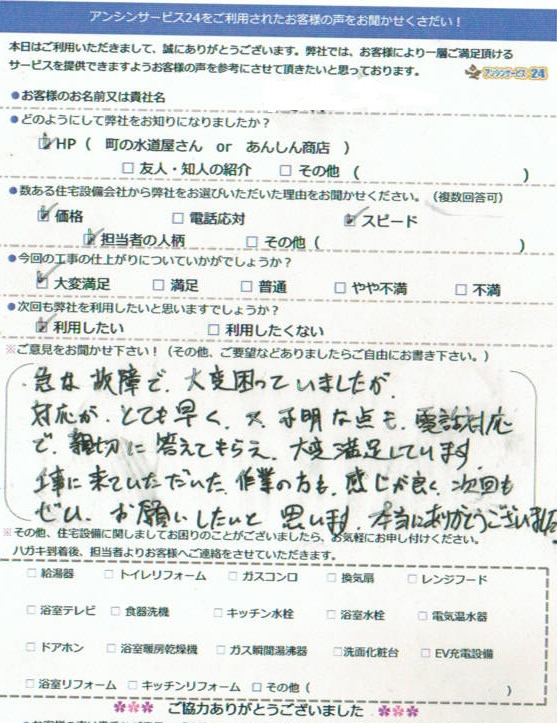 アンシンサービス24をご利用されたお客様の声をお聞かせくさだい!
本日はご利用いただきまして、誠にありがとうございます。弊社では、お客様により一層ご満足頂ける
サービスを提供できますようお客様の声を参考にさせて頂きたいと思っております。
アンシンサービス24
●お客様のお名前又は貴社名
●どのようにして弊社をお知りになりましたか?
☑HP( 町の水道屋さん or あんしん商店 )
□友人・知人の紹介 □その他( )
●数ある住宅設備会社から弊社をお選びいただいた理由をお聞かせください。(複数回答可)
☑価格 □電話応対 ☑スピード
☑担当者の人柄 □その他( )
●今回の工事の仕上がりについていかがでしょうか?
☑大変満足 □満足 □普通 □やや不満 □不満
●次回も弊社を利用したいと思いますでしょうか?
☑利用したい □利用したくない
※ご意見をお聞かせ下さい!(その他、ご要望などありましたらご自由にお書き下さい。)
急な故障で、大変困っていましたが、
対応が、とても早く、又、不明な点も、電話対応
で、親切に答えてもらえ、大変満足しています。
工事に来ていただいた、作業の方も、感じが良く、次回も
ぜひ、お願いしたいと思います。本当にありがとうございました。
※その他、住宅設備に関しましてお困りのことがございましたら、お気軽にお申し付けください。
ハガキ到着後、担当者よりお客様へご連絡をさせていただきます。
□給湯器 □トイレリフォーム □ガスコンロ □換気扇 □レンジフード
□浴室テレビ □食器洗機 □キッチン水栓 □浴室水栓 □電気温水器
□ドアホン □浴室暖房乾燥機 □ガス瞬間湯沸器 □洗面化粧台 □EV充電設備
□浴室リフォーム □キッチンリフォーム □その他( )
ご協力ありがとうございました